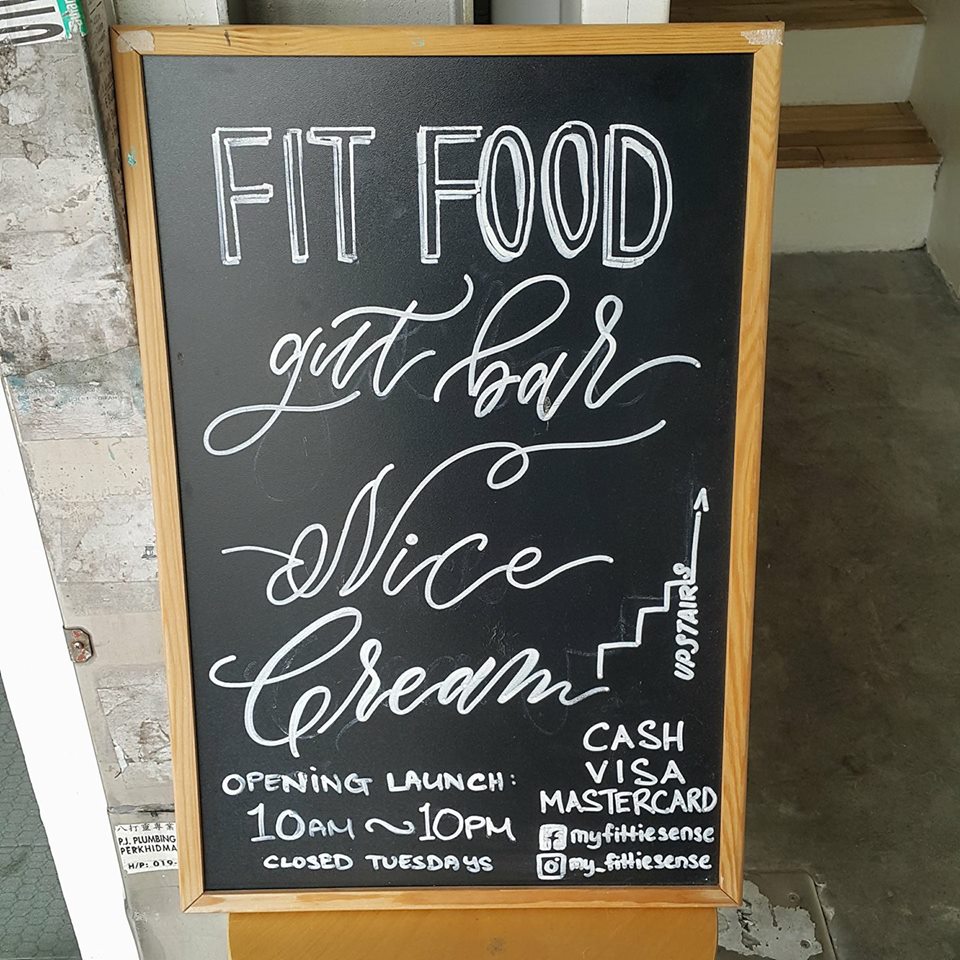 FIT FOOD
gut bar
Nice
Cream
UPSTAIRS
OPENING LAUNCH:
10AM ~ 10PM
CLOSED TUESDAYS
CASH
VISA
MASTERCARD
myfittiesense
my_fittiesense
八打靈專業
P.J. PLUMBING
PERKHIDMA
H/P: 019-